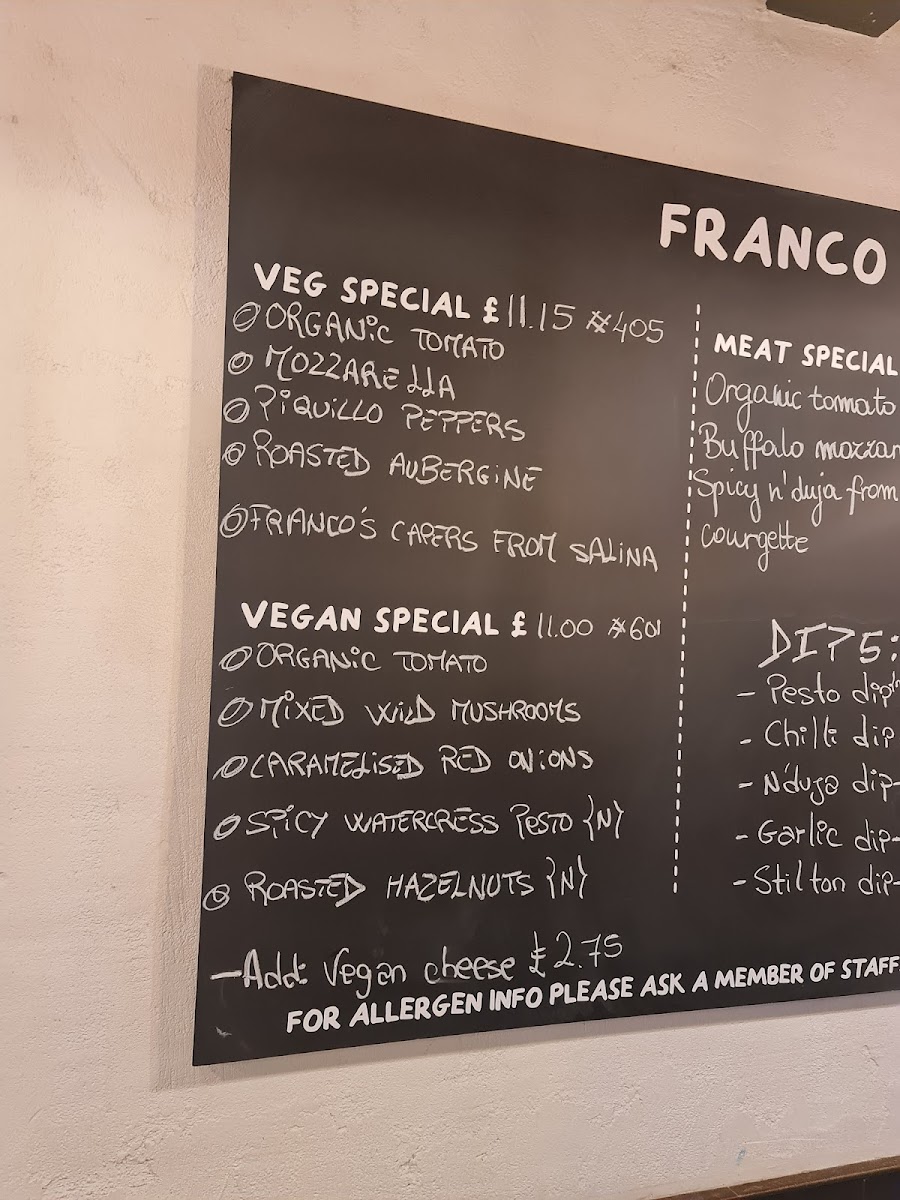 FRANCO
VEG SPECIAL £ 11.15 #405
ORGANIC TOMATO
MOZZARELLA
PIQUILLO PEPPERS
ROASTED AUBERGINE
FRANCO'S CAPERS FROM SALINA
VEGAN SPECIAL £ 11.00 #601
ORGANIC TOMATO
MIXED WILD MUSHROOMS
CARAMELISED RED ONIONS
SPICY WATERCRESS PESTO {N}
ROASTED HAZELNUTS {N}
-Add: Vegan cheese £2.75
MEAT SPECIAL
Organic tomato
Buffalo mozzar
Spicy n'duja from
courgette
DIPS:
- Pesto dip
- Chilli dip
- N'duja dip-
- Garlic dip-
- Stilton dip-
FOR ALLERGEN INFO PLEASE ASK A MEMBER OF STAFF